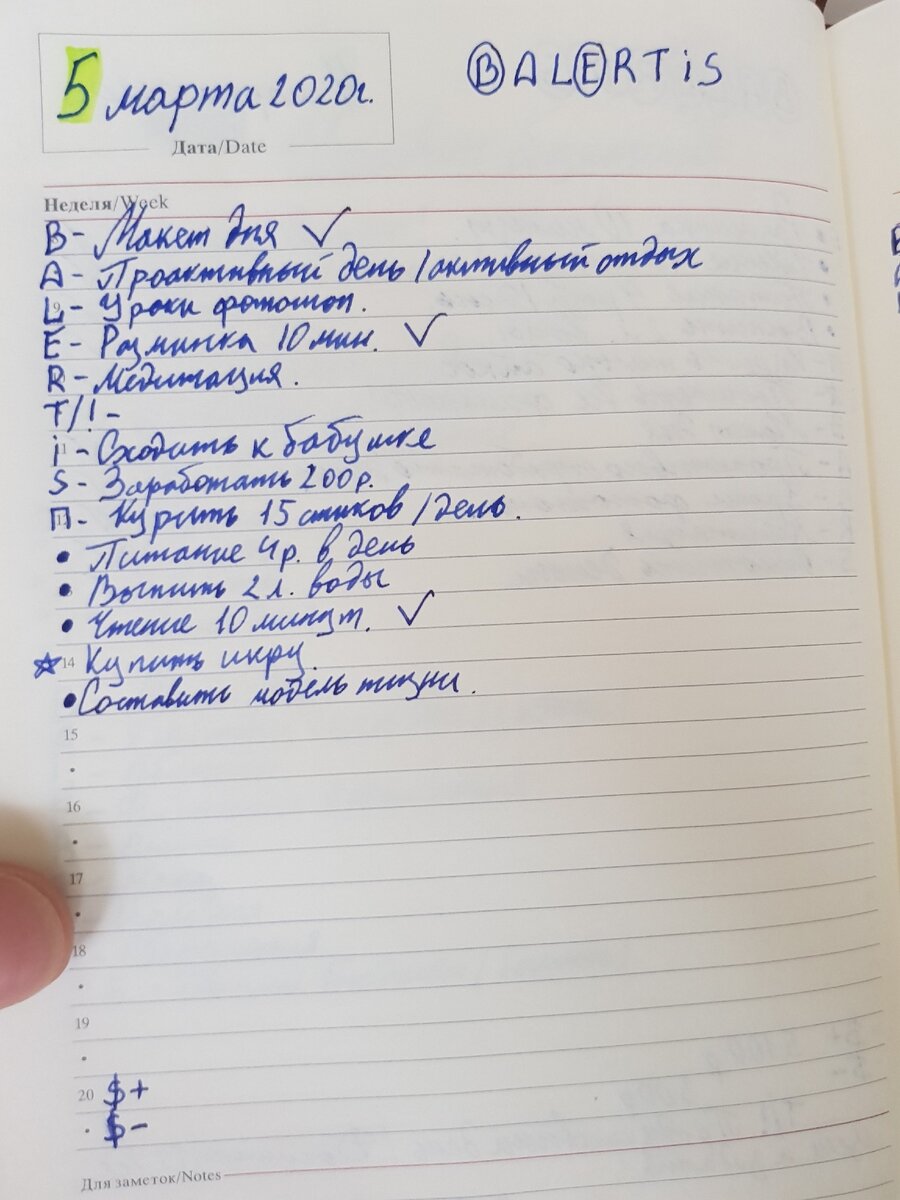 5 марта 2020г.
BALERTiS
Дата/Date
Неделя/Week
B - Макет дня ✓
A - Проактивный день /активный отдых
L - Уроки фотошоп.
E - Разминка 10 мин. ✓
R - Медитация.
T/! -
i - Сходить к бабушке
S - Заработать 200р.
П - Курить 15 стиков /день.
• Питание 4р. в день
• Выпить 2 л. воды
• Чтение 10 минут. ✓
☆ 14 Купить икру.
• Составить модель жизни.
15
16
17
18
19
20 $+
$-
Для заметок/Notes